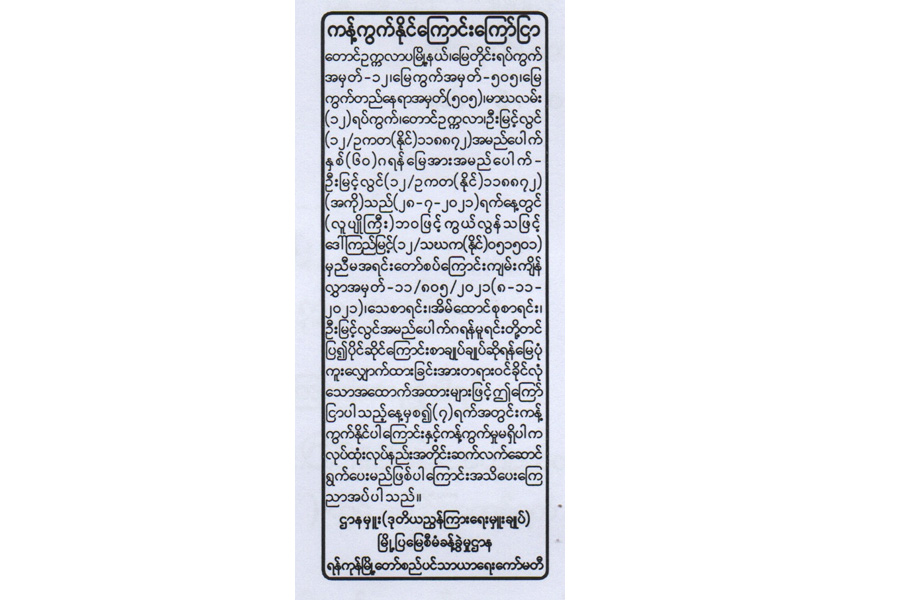 ကန့်ကွက်နိုင်ကြောင်းကြော်ငြာ
တောင်ဥက္ကလာပမြို့နယ်၊မြေတိုင်းရပ်ကွက်
အမှတ်-၁၂၊မြေကွက်အမှတ်-၅၀၅၊မြေ
ကွက်တည်နေရာအမှတ်(၅၀၅)၊မာဃလမ်း
(၁၂)ရပ်ကွက်၊တောင်ဥက္ကလာ၊ဦးမြင့်လွင်
(၁၂/ဥကတ(နိုင်)၁၁၈၈၇၂)အမည်ပေါက်
နှစ်(၆၀)ဂရန်မြေအားအမည်ပေါက်-
ဦးမြင့်လွင်(၁၂/ဥကတ(နိုင်)၁၁၈၈၇၂)
(အကို)သည်(၂၈-၇-၂၀၂၁)ရက်နေ့တွင်
(လူပျိုကြီး)ဘဝဖြင့်ကွယ်လွန်သဖြင့်
ဒေါ်ကြည်မြင့်(၁၂/သဃက(နိုင်)၀၅၁၅၀၁)
မှညီမအရင်းတော်စပ်ကြောင်းကျမ်းကျိန်
လွှာအမှတ်-၁၁/၈၀၅/၂၀၂၁(၈-၁၁-
၂၀၂၁)၊သေစာရင်း၊အိမ်ထောင်စုစာရင်း၊
ဦးမြင့်လွင်အမည်ပေါက်ဂရန်မူရင်းတို့တင်
ပြ၍ပိုင်ဆိုင်ကြောင်းစာချုပ်ချုပ်ဆိုရန်မြေပုံ
ကူးလျှောက်ထားခြင်းအားတရားဝင်ခိုင်လုံ
သောအထောက်အထားများဖြင့်ဤကြော်
ငြာပါသည့်နေ့မှစ၍(၇)ရက်အတွင်းကန့်
ကွက်နိုင်ပါကြောင်းနှင့်ကန့်ကွက်မှုမရှိပါက
လုပ်ထုံးလုပ်နည်းအတိုင်းဆက်လက်ဆောင်
ရွက်ပေးမည်ဖြစ်ပါကြောင်းအသိပေးကြေ
ညာအပ်ပါသည်။
ဌာနမှူး(ဒုတိယညွှန်ကြားရေးမှူးချုပ်)
မြို့ပြမြေစီမံခန့်ခွဲမှုဌာန
ရန်ကုန်မြို့တော်စည်ပင်သာယာရေးကော်မတီ